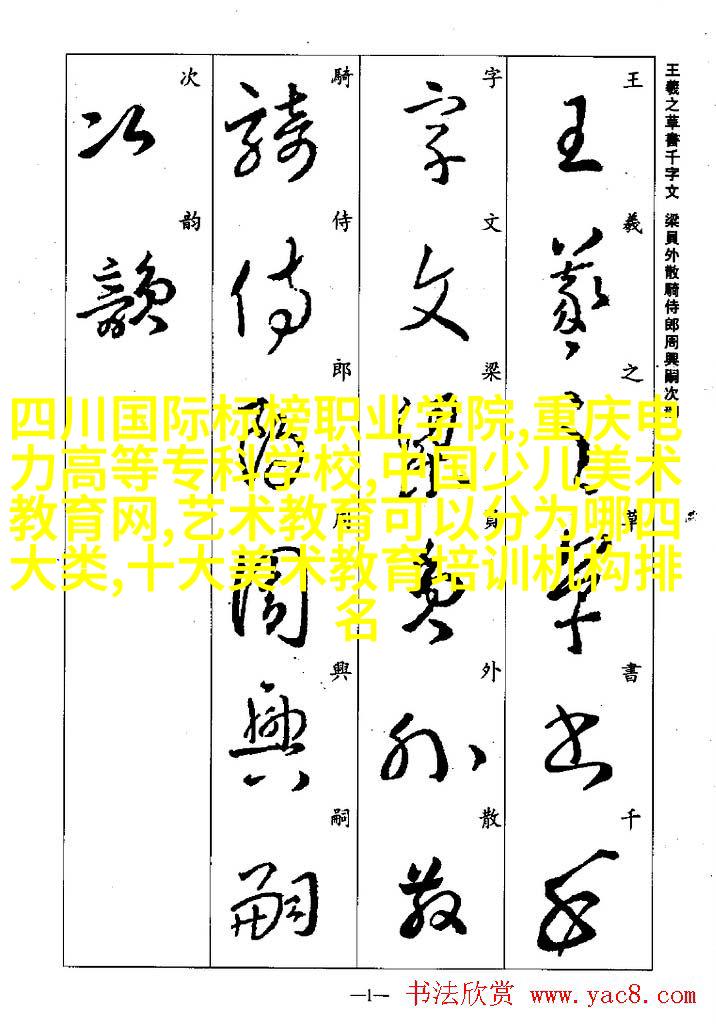 王羲之草書千字文 梁員外散騎侍郎周興嗣次
王羲之草書千
王羲之草書千
字文梁員外散
字文梁員外散
騎侍郎周興嗣
騎侍郎周興嗣
次韵
次韻
四川国际标榜职业学院,重庆电
力高等专科学校,中国少儿美术
教育网,艺术教育可以分为哪四
大类,十大美术教育培训机构排
名
—1—
书法欣赏 www.yac8.com